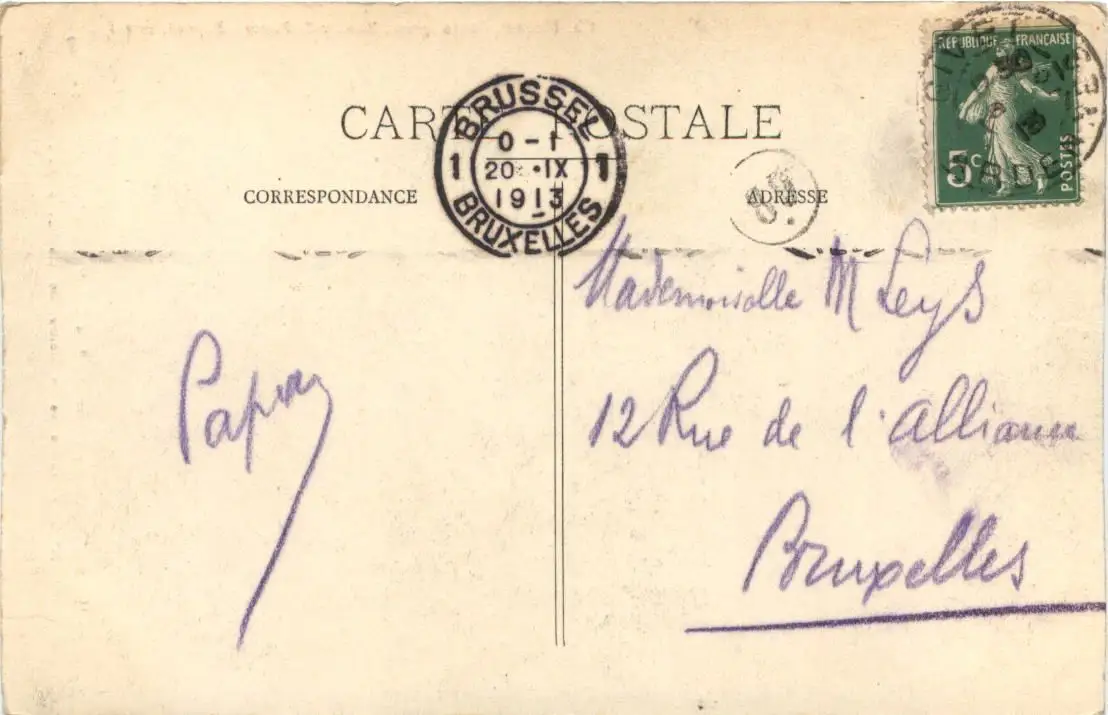 CARTE POSTALE
CORRESPONDANCE
ADRESSE
BRUSSEL
1 0-1 1
20 IX
1913
BRUXELLES
REPUBLIQUE FRANÇAISE
5c
POSTES
Papa
Mademoiselle M Leys
12 Rue de l'alliance
Bruxelles